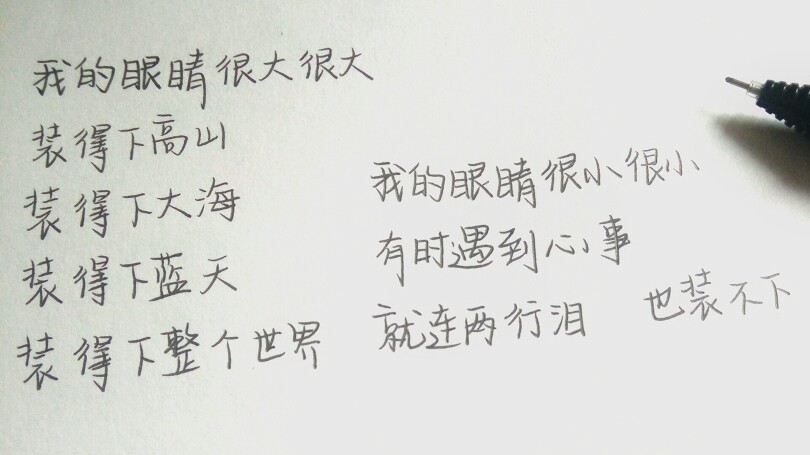 我的眼睛很大很大
装得下高山
装得下大海
装得下蓝天
装得下整个世界
我的眼睛很小很小
有时遇到心事
就连两行泪 也装不下